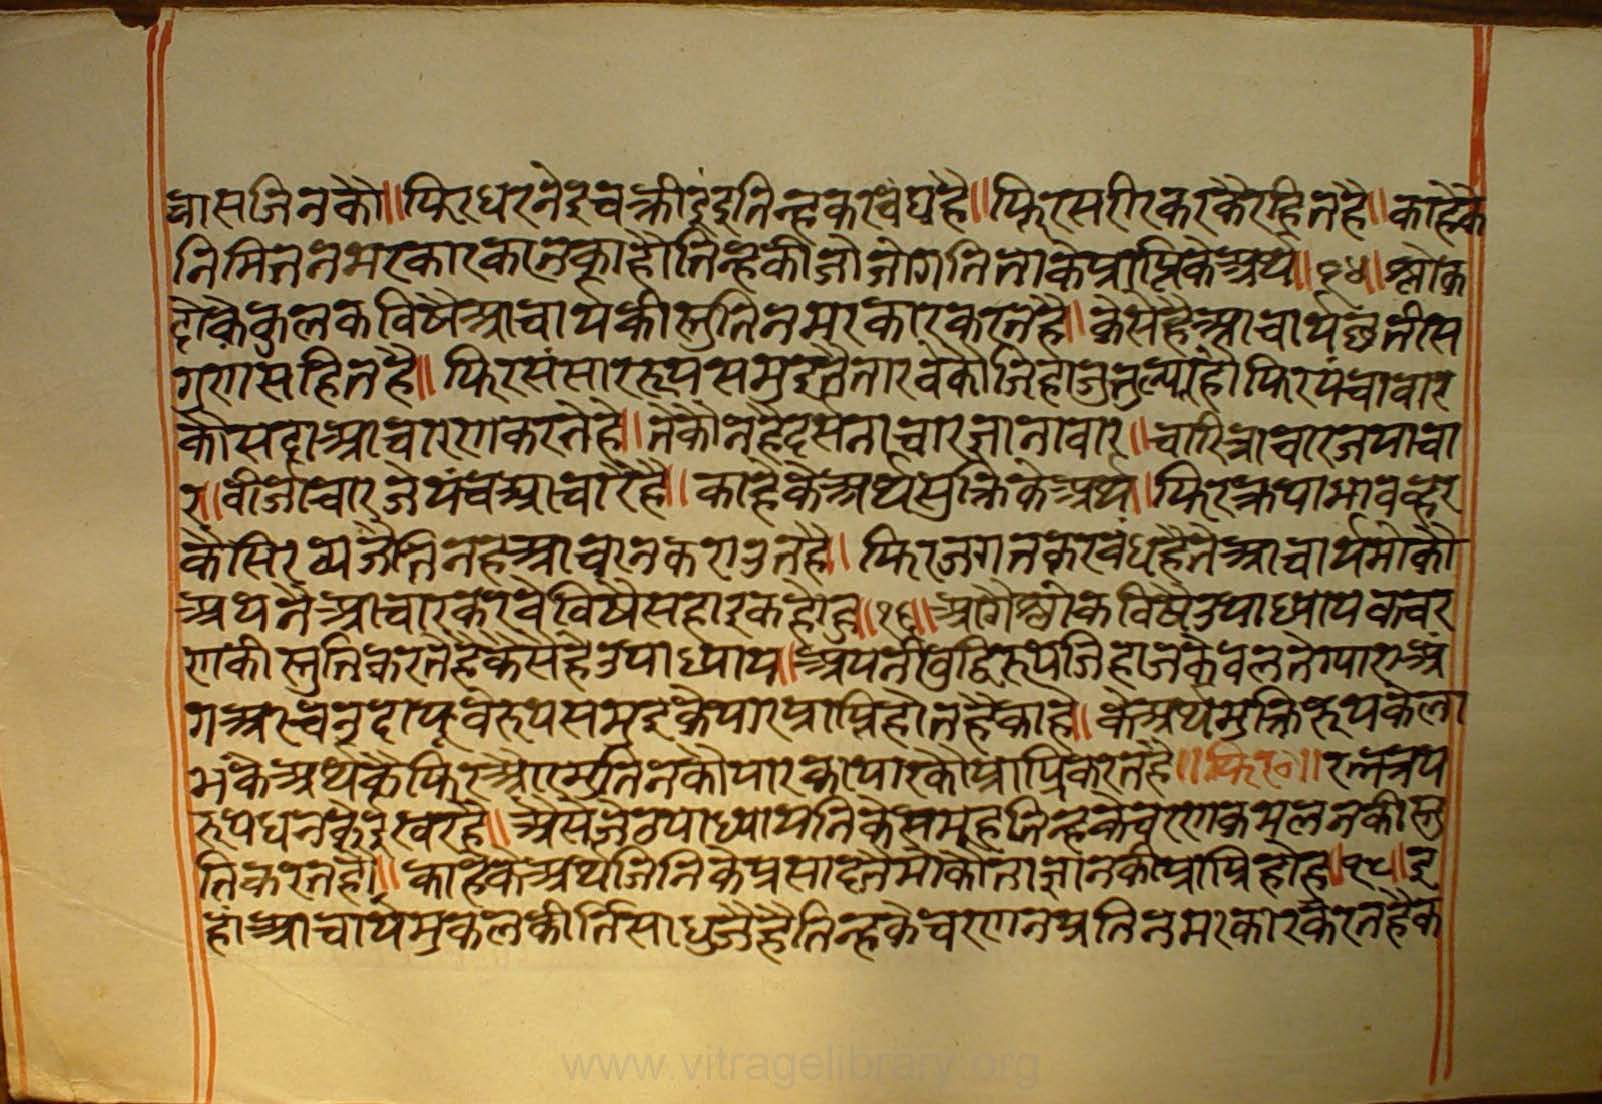 वास जिनकौ॥ फिर धरनेद्र चक्री इंद्र तिन्हकर वंघ है॥ फिर सरीर कर कै रहित है॥ काहेके
निमित्त नमस्कार करतु का हौ तिन्हकी जो जोग तिनाके प्राप्तिके अर्थ॥१४॥ श्लोक
दोकै कुलक विषै आचार्यकी स्तुति नमस्कार करत है॥ कैसे है आचार्य छत्तीस
गुण सहित है॥ फिर संसाररूप समुद्रतै तारवेकौ जिहाज तुल्य है फिर पंचाचार
कौ सदा आचारण करतै है॥ ते कौन है दर्सनाचार ज्ञानाचार॥ चारित्राचार ज पाचा
र॥ वीर्जाचार जे पंच आचार है॥ काहेके अर्थ मुक्तिके अर्थ॥ फिर क्रपाभाव कर
कै सिष्य जै तिनह आचरन कराउत है॥ फिर जगत कर वंघ है ते आचार्य मोकौ
अपनै आचार करवे विषै सहाइक होहु॥१६॥ आगै श्लोक विषै उपाध्यायके चर
णकी स्तुति करतै है कैसे है उपाध्याय॥ अपनी वुद्धिरूप जिहाजके वलतै ग्यारा अं
ग अर चतुर्दा पूर्वरूप समुद्रकै पार प्राप्ति होत है काहे॥ के अर्थ मुक्तिरूपके ला
भकै अर्थ कै फिर और मुनिनकौ पारका पारकौ प्राप्ति करतै है॥ फिर॥ रत्नत्रय
रूप धनके ईस्वर है॥ असे जे उपाध्याय तिके समूह तिन्हके चरण कमलनकी स्तु
ति करत हौं॥ काहेके अर्थ जिनिके प्रसादतै मोकौ ता ज्ञानकी प्राप्ति होहु॥१८॥ इ
हां आचार्य सुकलकीर्ति साधु जै है तिन्हके चरणन प्रति नमस्कार करत है क
www.vitragelibrary.org